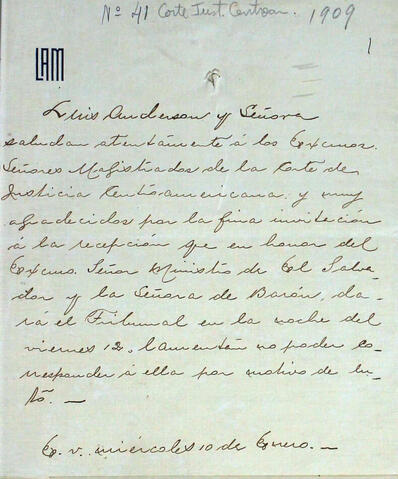 Nº 41 Corte Just. Centroam. 1909
1
LAM
Luis Anderson y Señora
saludan atentamente á los Excmos.
Señores Magistrados de la Corte de
Justicia Centroamericana, y muy
agradecidos por la fina invitación
á la recepción que en honor del
Excmo. Señor Ministro de El Salva-
dor y la Señora de Barón, da-
rá el Tribunal en la noche del
viernes 12, lamentan no poder co-
rresponder á ella por motivo de lu-
to. —
C. v. miércoles 10 de Enero. —